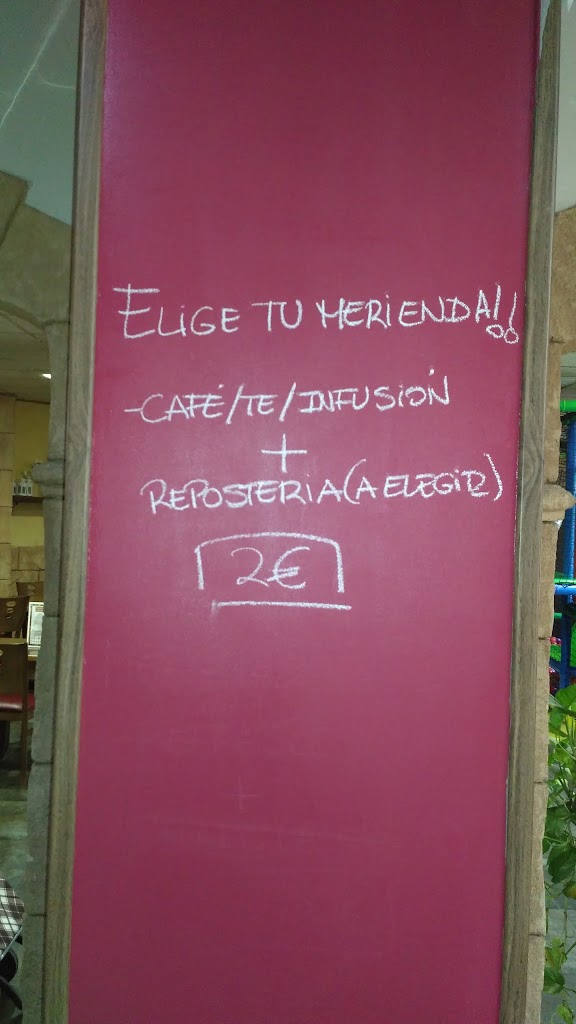 ELIGE TU MERIENDA!!
-CAFÉ/TE/INFUSIÓN
+
REPOSTERIA(A ELEGIR)
2€